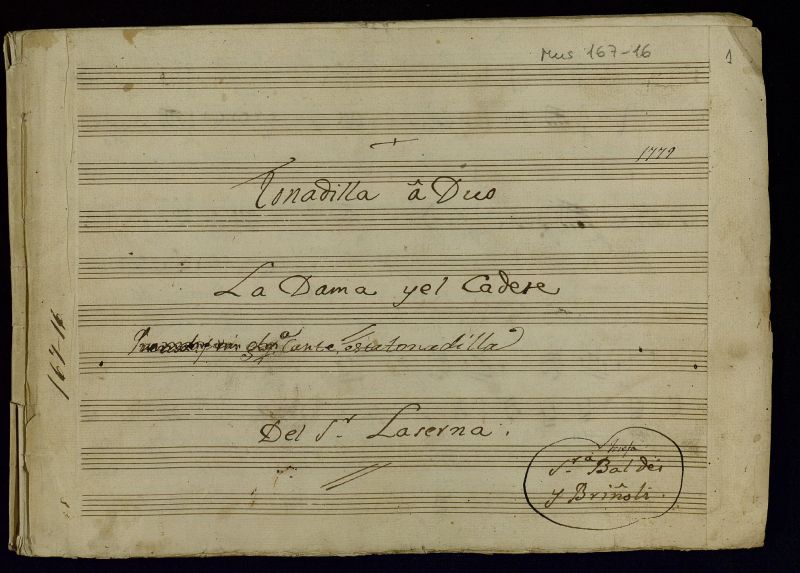 Mus 167-16
1
1779
Tonadilla â Duo
La Dama y el Cadete
Cante esta tonadilla
Del S.r Laserna.
S.ra Baldés
y Briñoli.
167-16